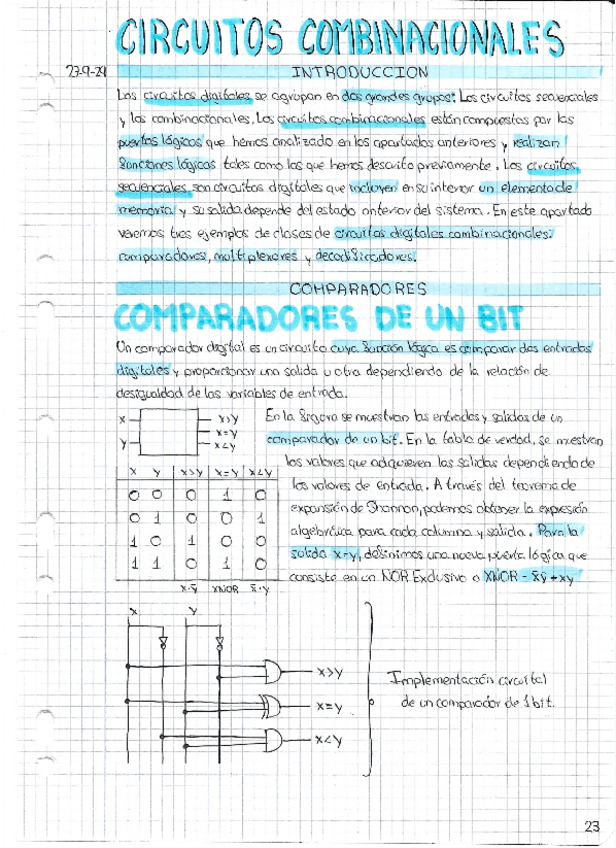 CIRCUITOS COMBINACIONALES
27-9-24
INTRODUCCION
Los circuitos digitales se agrupan en dos grandes grupos: Los circuitos secuenciales
y los combinacionales. Los circuitos combinacionales están compuestos por las
puertas lógicas que hemos analizado en los apartados anteriores y realizan
funciones lógicas tales como las que hemos descrito previamente. Los circuitos
secuenciales son circuitos digitales que incluyen en su interior un elemento de
memoria y su salida depende del estado anterior del sistema. En este apartado
veremos tres ejemplos de clases de circuitos digitales combinacionales:
comparadores, multiplexores y decodificadores.
COMPARADORES
COMPARADORES DE UN BIT
Un comparador digital es un circuito cuya función lógica es comparar dos entradas
digitales y proporcionar una salida u otra dependiendo de la relación de
desigualdad de las variables de entrada.
X
Y
X>Y
X=Y
X<Y
En la figura se muestran las entradas y salidas de un
comparador de un bit. En la tabla de verdad, se muestran
los valores que adquieren las salidas dependiendo de
los valores de entrada. A través del teorema de
expansión de Shannon, podemos obtener la expresión
algebráica para cada columna y salida. Para la
salida x=y, definimos una nueva puerta lógica que
consiste en un NOR Exclusivo o XNOR = x̄ȳ + xy
X Y X>Y X=Y X<Y
0 0 0 1 0
0 1 0 0 1
1 0 1 0 0
1 1 0 1 0
x·ȳ XNOR x̄·y
X Y
X>Y
X=Y
X<Y
Implementación circuital
de un comparador de 1 bit.
23